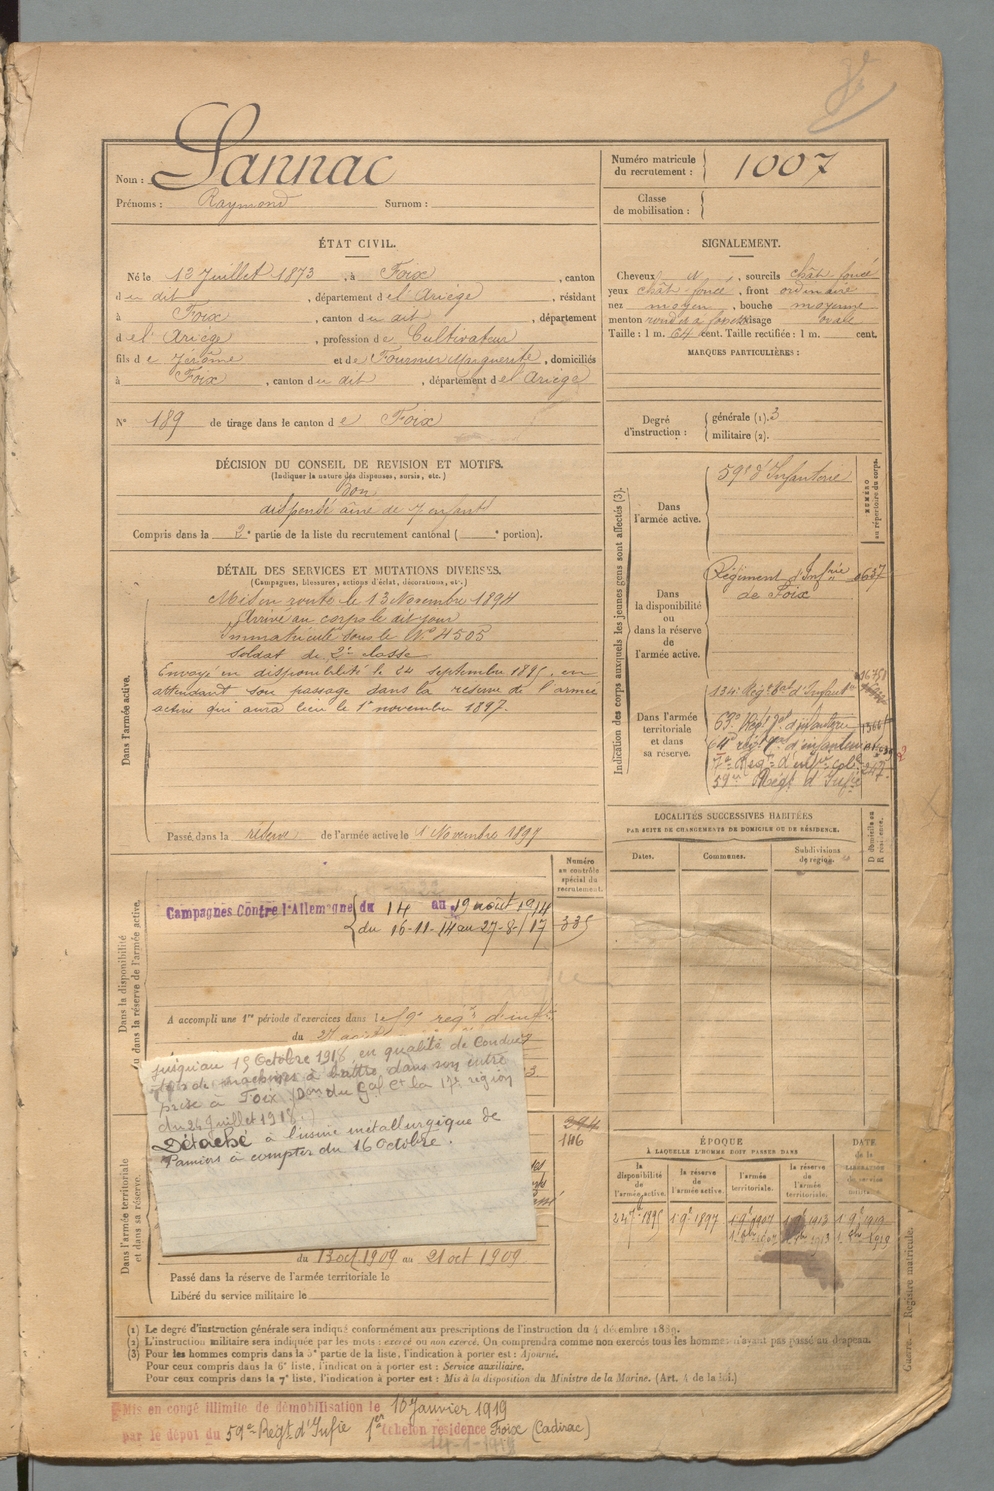 Nom : Lannac
Prénoms : Raymond Surnom :
Numéro matricule du recrutement : 1007
Classe de mobilisation :
ÉTAT CIVIL.
Né le 12 Juillet 1873, à Foix, canton
du dit, département de l'Ariège, résidant
à Foix, canton du dit, département
de l'Ariège, profession de Cultivateur
fils de Jérôme et de Fournier Marguerite, domiciliés
à Foix, canton du dit, département de l'Ariège
N° 189 de tirage dans le canton de Foix
SIGNALEMENT.
Cheveux, sourcils chât foncé
yeux chât foncé, front ordinaire
nez moyen, bouche moyenne
menton rond à fossette visage ovale
Taille : 1 m. 64 cent. Taille rectifiée : 1 m. cent.
MARQUES PARTICULIÈRES :
Degré d'instruction : générale (1). 3
militaire (2).
DÉCISION DU CONSEIL DE REVISION ET MOTIFS.
(Indiquer la nature des dispenses, sursis, etc.)
Bon
dispensé aîné de 7 enfants
Compris dans la 2e partie de la liste du recrutement cantonal ( e portion).
DÉTAIL DES SERVICES ET MUTATIONS DIVERSES.
(Campagnes, blessures, actions d'éclat, décorations, etc.)
Dans l'armée active.
Mis en route le 13 Novembre 1894
Arrivé au corps le dit jour
Immatriculé sous le No 4505
Soldat de 2e classe
Envoyé en disponibilité le 24 septembre 1895, en
attendant son passage dans la réserve de l'armée
active qui aura lieu le 1er novembre 1897.
Passé dans la réserve de l'armée active le 1 Novembre 1897
Indication des corps auxquels les jeunes gens sont affectés (3).
NUMÉRO au répertoire du corps.
Dans l'armée active.
59e d'Infanterie
Dans la disponibilité ou dans la réserve de l'armée active.
Régiment d'Infrie
de Foix
Dans l'armée territoriale et dans sa réserve.
134e Régt
63e Régt d'infanterie
59e Régt d'Infie
LOCALITÉS SUCCESSIVES HABITÉES
PAR SUITE DE CHANGEMENTS DE DOMICILE OU DE RÉSIDENCE.
Dates. Communes. Subdivisions de région. D domicile ou R résidence.
Dans la disponibilité ou dans la réserve de l'armée active.
Numéro au contrôle spécial du recrutement.
Campagnes Contre l'Allemagne du 14 au 19 août 1914
du 16-11-14 au 27-8-17
335
A accompli une 1re période d'exercices dans le 59e régt d'infie
du 27
jusqu'au 15 Octobre 1918 en qualité de Conduct
de machines à battre dans son entre
prise à Foix (Don du Gal Ct la 17e région
du 26 Juillet 1918.)
Détaché à l'usine métallurgique de
Pamiers à compter du 16 Octobre.
146
Dans l'armée territoriale et dans sa réserve.
du 13 oct 1909 au 21 oct 1909
Passé dans la réserve de l'armée territoriale le
Libéré du service militaire le
ÉPOQUE
À LAQUELLE L'HOMME DOIT PASSER DANS
la disponibilité de l'armée active. la réserve de l'armée active. l'armée territoriale. la réserve de l'armée territoriale. DATE de la LIBÉRATION du service militaire.
24 7bre 1895 1 9bre 1897
(1) Le degré d'instruction générale sera indiqué conformément aux prescriptions de l'instruction du 4 décembre 1889.
(2) L'instruction militaire sera indiquée par les mots : exercé ou non exercé. On comprendra comme non exercés tous les hommes n'ayant pas passé au drapeau.
(3) Pour les hommes compris dans la 5e partie de la liste, l'indication à porter est : Ajourné.
Pour ceux compris dans la 6e liste, l'indication à porter est : Service auxiliaire.
Pour ceux compris dans la 7e liste, l'indication à porter est : Mis à la disposition du Ministre de la Marine. (Art. 4 de la loi.)
Guerre. — Registre matricule.
Mis en congé illimité de démobilisation le 10 Janvier 1919
par le dépôt du 59e Régt d'Infie 1er échelon résidence Foix (Cadirac)
14-1-1919